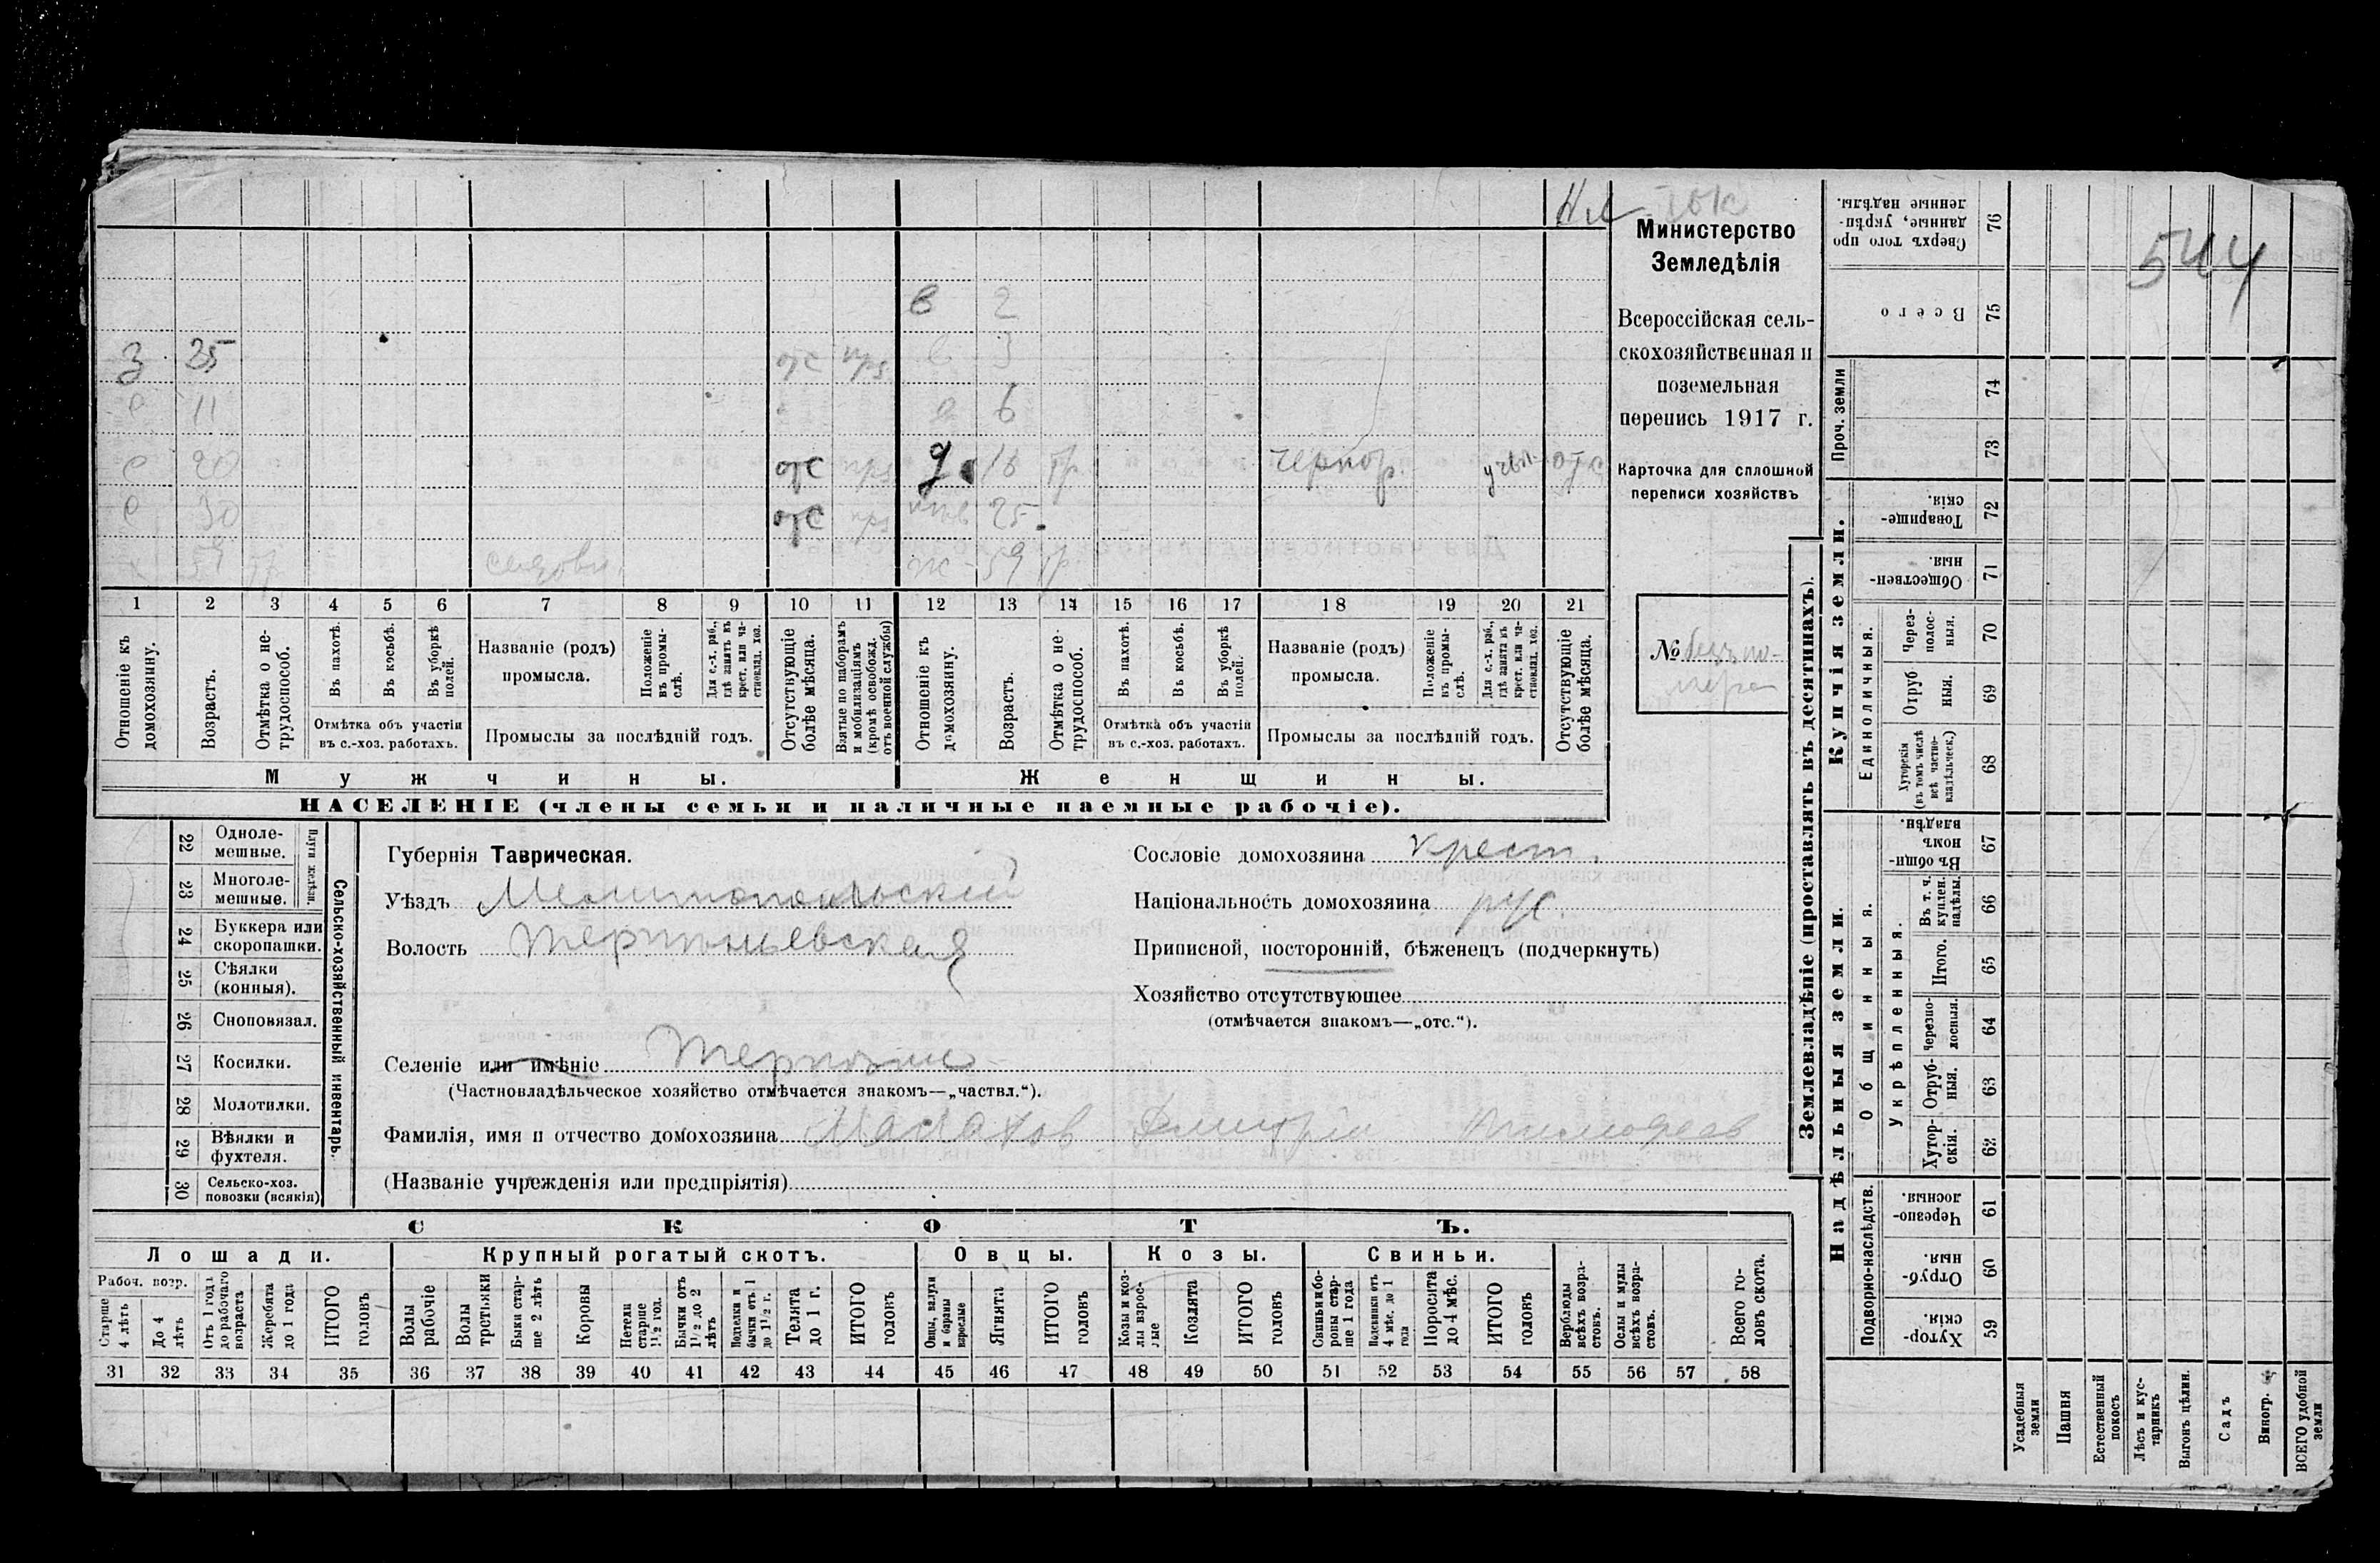 Министерство
Земледѣлія
Всероссійская сель-
скохозяйственная и
поземельная
перепись 1917 г.
Карточка для сплошной
переписи хозяйствъ
№ безъ но-
мера
544
в 2
З 35 отс 3
с 11 6
с 20 отс д. 16 гр. чернор. отс
с 30 отс 25
59 ж 59 гр.
1 2 3 4 5 6 7 8 9 10 11 12 13 14 15 16 17 18 19 20 21
Отношеніе къ домохозяину.
Возрастъ.
Отмѣтка о не-трудоспособ.
Въ пахотѣ.
Въ косьбѣ.
Въ уборкѣ полей.
Отмѣтка объ участіи
въ с.-хоз. работахъ.
Названіе (родъ)
промысла.
Положеніе въ промы-слѣ.
Для с.-х. раб., гдѣ занятъ въ крест. или ча-стновлад. хоз.
Промыслы за послѣдній годъ.
Отсутствующіе болѣе мѣсяца.
Взятые по наборамъ и мобилизаціямъ (кромѣ освобожд. отъ военной службы)
Отношеніе къ домохозяину.
Возрастъ.
Отмѣтка о не-трудоспособ.
Въ пахотѣ.
Въ косьбѣ.
Въ уборкѣ полей.
Отмѣтка объ участіи
въ с.-хоз. работахъ.
Названіе (родъ)
промысла.
Положеніе въ промы-слѣ.
Для с.-х. раб., гдѣ занята въ крест. или ча-стновлад. хоз.
Промыслы за послѣдній годъ.
Отсутствующіе болѣе мѣсяца.
Мужчины.
Женщины.
НАСЕЛЕНІЕ (члены семьи и наличные наемные рабочіе).
22 Одноле-мешные.
23 Многоле-мешные.
Плуги желѣзн.
24 Буккера или скоропашки.
25 Сѣялки (конныя).
26 Сноповязал.
27 Косилки.
28 Молотилки.
29 Вѣялки и фухтеля.
30 Сельско-хоз. повозки (всякія)
Сельско-хозяйственный инвентарь.
Губернія Таврическая.
Уѣздъ Мелитопольскій
Волость Терпѣньевская
Сословіе домохозяина крест.
Національность домохозяина рус.
Приписной, посторонній, бѣженецъ (подчеркнуть)
Хозяйство отсутствующее
(отмѣчается знакомъ—„отс.“).
Селеніе или имѣніе Терпѣніе
(Частновладѣльческое хозяйство отмѣчается знакомъ—„частвл.“).
Фамилія, имя и отчество домохозяина Малахов Дмитрій Тимофеев
(Названіе учрежденія или предпріятія)
СКОТЪ.
Лошади.
Крупный рогатый скотъ.
Овцы.
Козы.
Свиньи.
Рабоч. возр.
Старше 4 лѣтъ
До 4 лѣтъ
Отъ 1 года до рабочаго возраста
Жеребята до 1 года
ИТОГО головъ
Волы рабочіе
Волы третьяки
Быки стар-ше 2 лѣтъ
Коровы
Нетели старше 1½ год.
Бычки отъ 1½ до 2 лѣтъ
Подтелки и бычки отъ 1 до 1½ г.
Телята до 1 г.
ИТОГО головъ
Овцы, валухи и бараны взрослые
Ягнята
ИТОГО головъ
Козы и коз-лы взрос-лые
Козлята
ИТОГО головъ
Свиньи и бо-ровы стар-ше 1 года
Подсвинки отъ 4 мѣс. до 1 года
Поросята до 4 мѣс.
ИТОГО головъ
Верблюды всѣхъ возра-стовъ.
Ослы и мулы всѣхъ возра-стовъ.
Всего го-ловъ скота.
31 32 33 34 35 36 37 38 39 40 41 42 43 44 45 46 47 48 49 50 51 52 53 54 55 56 57 58
Землевладѣніе (проставлять въ десятинахъ).
Надѣльныя земли.
Купчія земли.
Проч. земли
Подворно-наслѣдств.
Общинныя.
Укрѣпленныя.
Единоличныя.
Сверхъ того про-данные, укрѣп-ленные надѣлы. 76
Всего 75
74
73
Товарище-скія. 72
Обществен-ныя 71
Через-полос-ныя. 70
Отруб-ныя. 69
Хуторскія (въ томъ числѣ всѣ частно-владѣльческ.) 68
Въ общи-номъ владѣн. 67
Въ т. ч. куплен. надѣлы. 66
Итого. 65
Черезпо-лосныя. 64
Отруб-ныя. 63
Хутор-скія. 62
Черезпо-лосныя. 61
Отруб-ныя. 60
Хутор-скія. 59
Усадебныя земли
Пашня
Естественный покосъ
Лѣсъ и кус-тарникъ
Выгонъ цѣлин.
Садъ
Виногр.
ВСЕГО удобной земли